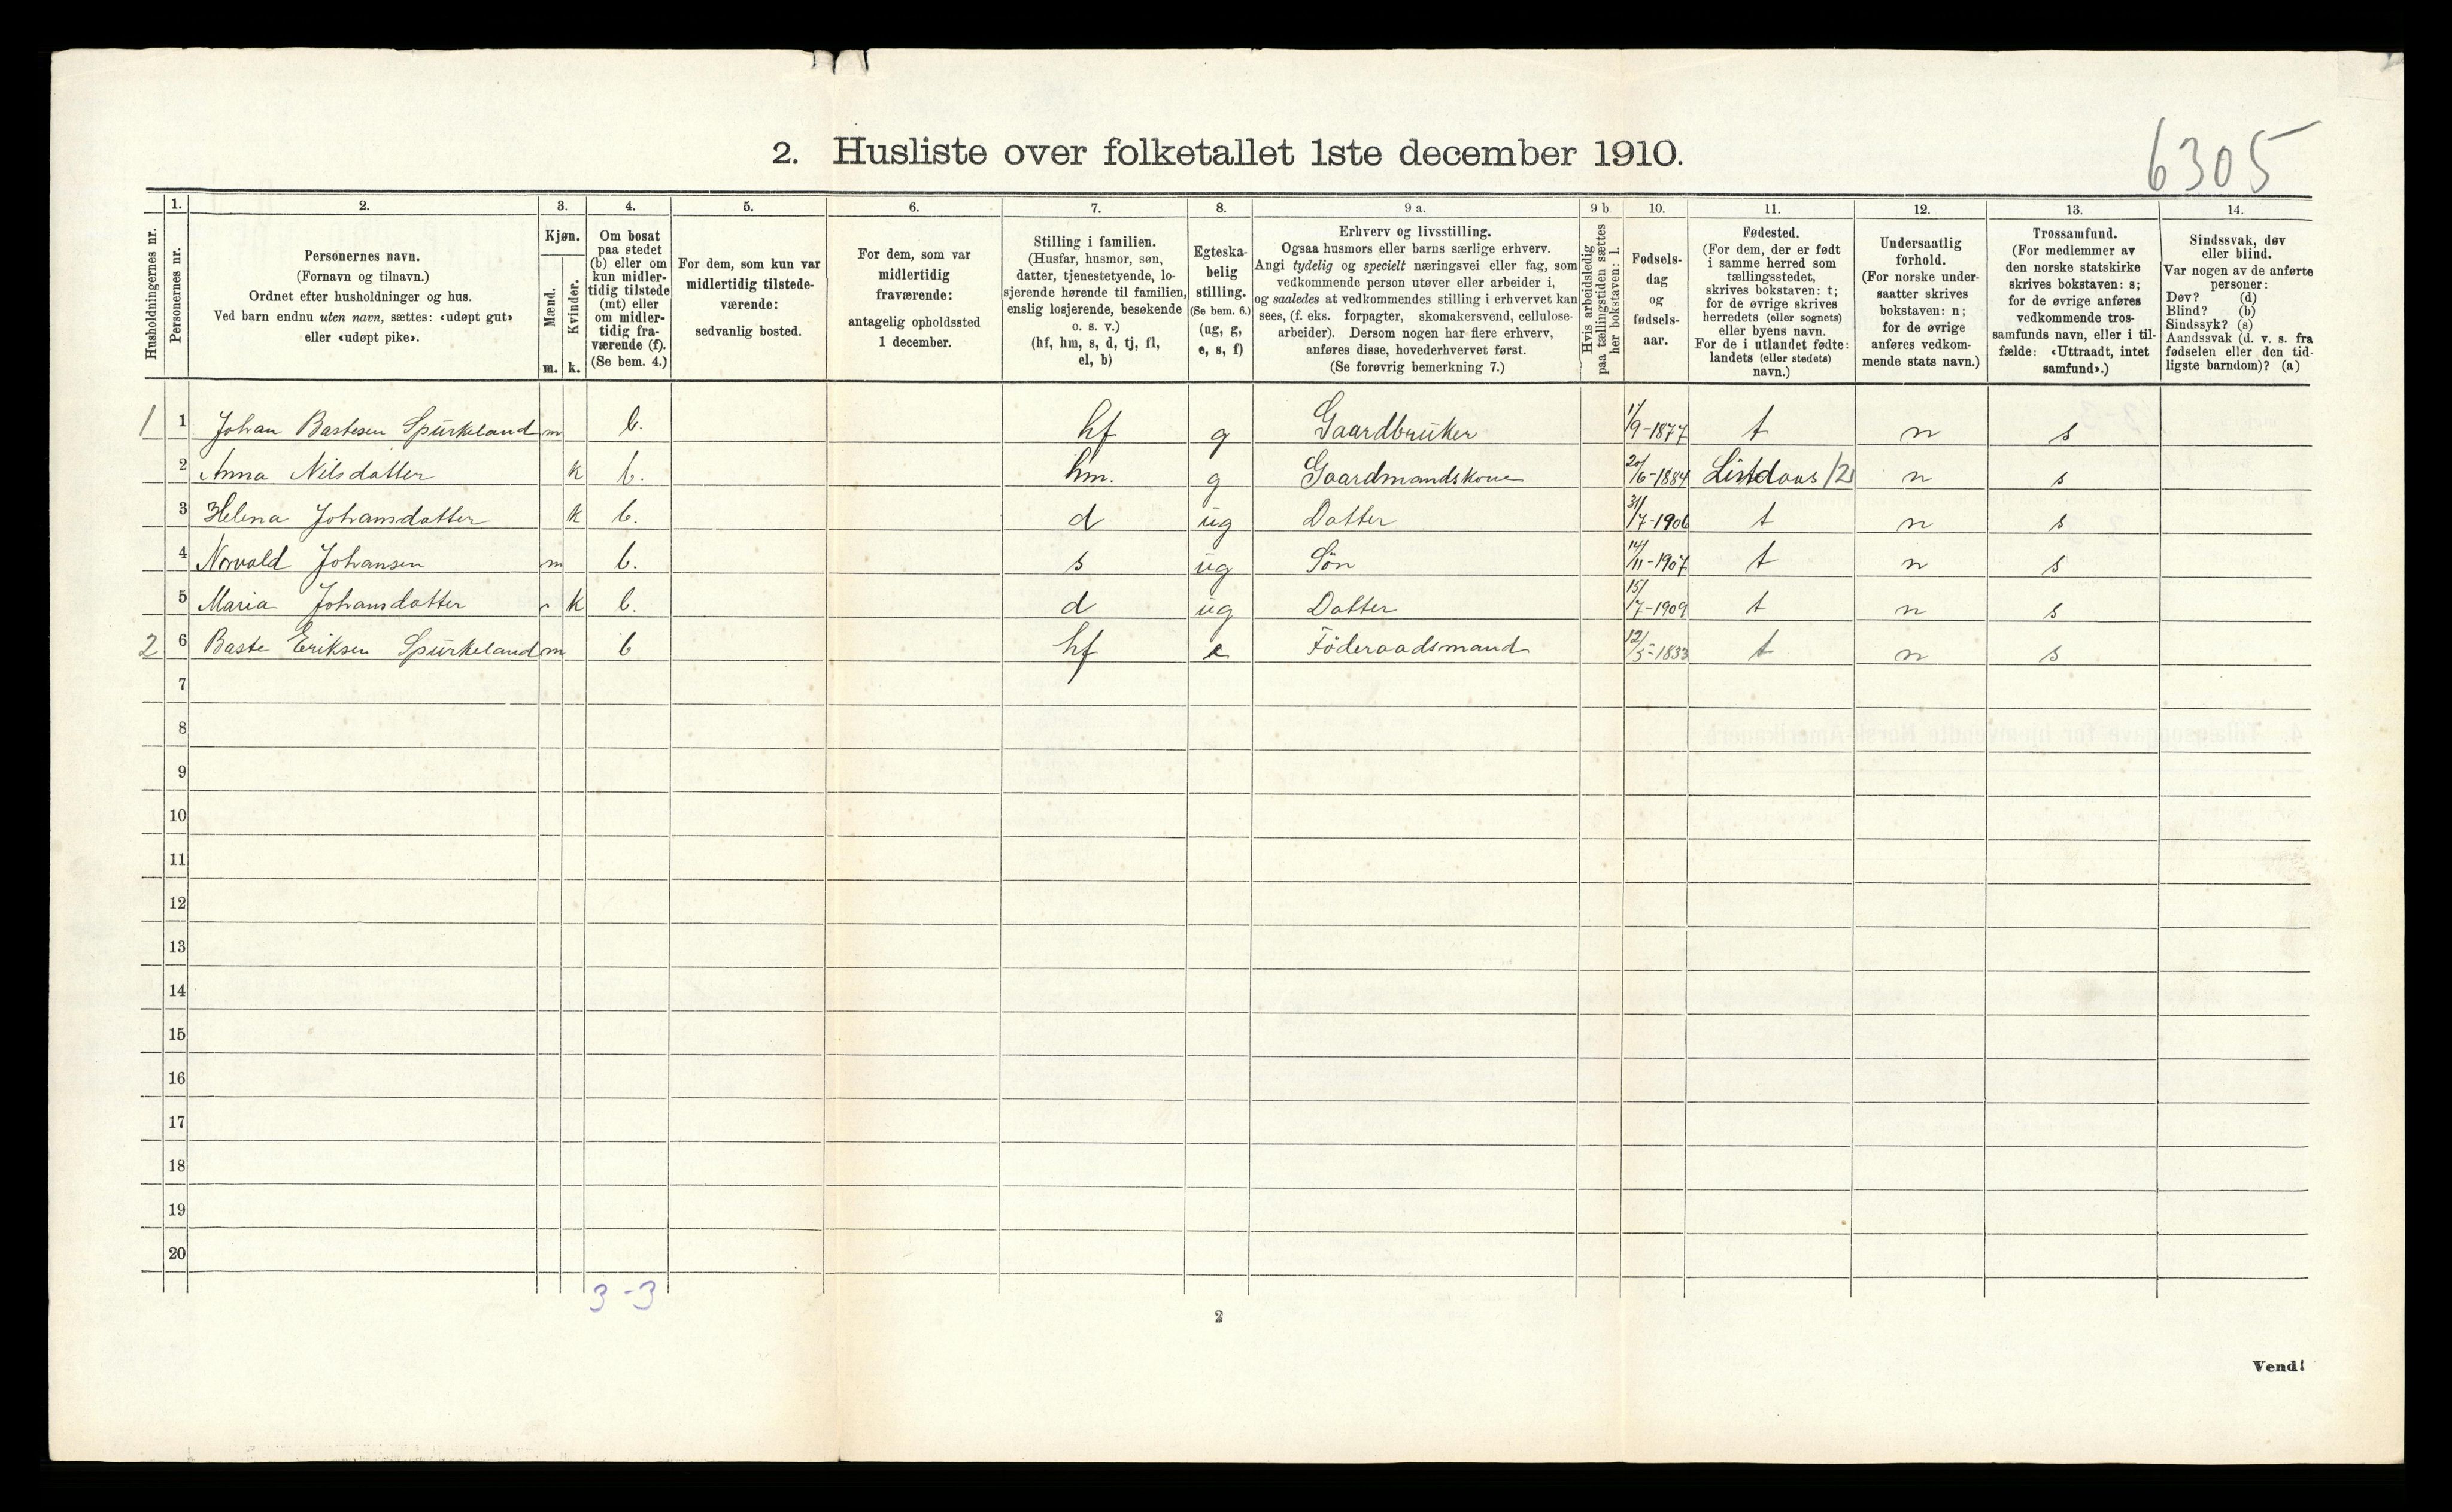 6305
2. Husliste over folketallet 1ste december 1910.
Husholdningernes nr.
1.
Personernes nr.
2.
Personernes navn.
(Fornavn og tilnavn.)
Ordnet efter husholdninger og hus.
Ved barn endnu uten navn, sættes: «udøpt gut»
eller «udøpt pike».
3.
Kjøn.
Mænd.
Kvinder.
m. k.
4.
Om bosat
paa stedet
(b) eller om
kun midler-
tidig tilstede
(mt) eller
om midler-
tidig fra-
værende (f).
(Se bem. 4.)
5.
For dem, som kun var
midlertidig tilstede-
værende:
sedvanlig bosted.
6.
For dem, som var
midlertidig
fraværende:
antagelig opholdssted
1 december.
7.
Stilling i familien.
(Husfar, husmor, søn,
datter, tjenestetyende, lo-
sjerende hørende til familien,
enslig losjerende, besøkende
o. s. v.)
(hf, hm, s, d, tj, fl,
el, b)
8.
Egteska-
belig
stilling.
(Se bem. 6.)
(ug, g,
e, s, f)
9 a.
Erhverv og livsstilling.
Ogsaa husmors eller barns særlige erhverv.
Angi tydelig og specielt næringsvei eller fag, som
vedkommende person utøver eller arbeider i,
og saaledes at vedkommendes stilling i erhvervet kan
sees, (f. eks. forpagter, skomakersvend, cellulose-
arbeider). Dersom nogen har flere erhverv,
anføres disse, hovederhvervet først.
(Se forøvrig bemerkning 7.)
9 b
Hvis arbeidsledig
paa tællingstiden sættes
her bokstaven: l.
10.
Fødsels-
dag
og
fødsels-
aar.
11.
Fødested.
(For dem, der er født
i samme herred som
tællingsstedet,
skrives bokstaven: t;
for de øvrige skrives
herredets (eller sognets)
eller byens navn.
For de i utlandet fødte:
landets (eller stedets)
navn.)
12.
Undersaatlig
forhold.
(For norske under-
saatter skrives
bokstaven: n;
for de øvrige
anføres vedkom-
mende stats navn.)
13.
Trossamfund.
(For medlemmer av
den norske statskirke
skrives bokstaven: s;
for de øvrige anføres
vedkommende tros-
samfunds navn, eller i til-
fælde: «Uttraadt, intet
samfund».)
14.
Sindssvak, døv
eller blind.
Var nogen av de anførte
personer:
Døv? (d)
Blind? (b)
Sindssyk? (s)
Aandssvak (d. v. s. fra
fødselen eller den tid-
ligste barndom)? (a)
1 1 Johan Bastesen Spürkeland m b. hf g Gaardbrüker 1/9-1877 t n s
2 Anna Nilsdatter k b. hm. g Gaardmandskone 20/6-1884 Lindaas 12 n s
3 Helena Johansdatter k b. d üg Datter 31/7-1906 t n s
4 Norvald Johansen m b. s üg Søn 14/11-1907 t n s
5 Maria Johansdatter k b. d üg Datter 15/7-1909 t n s
2 6 Baste Eriksen Spürkeland m b hf e Föderaadsmand 12/5-1833 t n s
7
8
9
10
11
12
13
14
15
16
17
18
19
20
3-3
2
Vend!